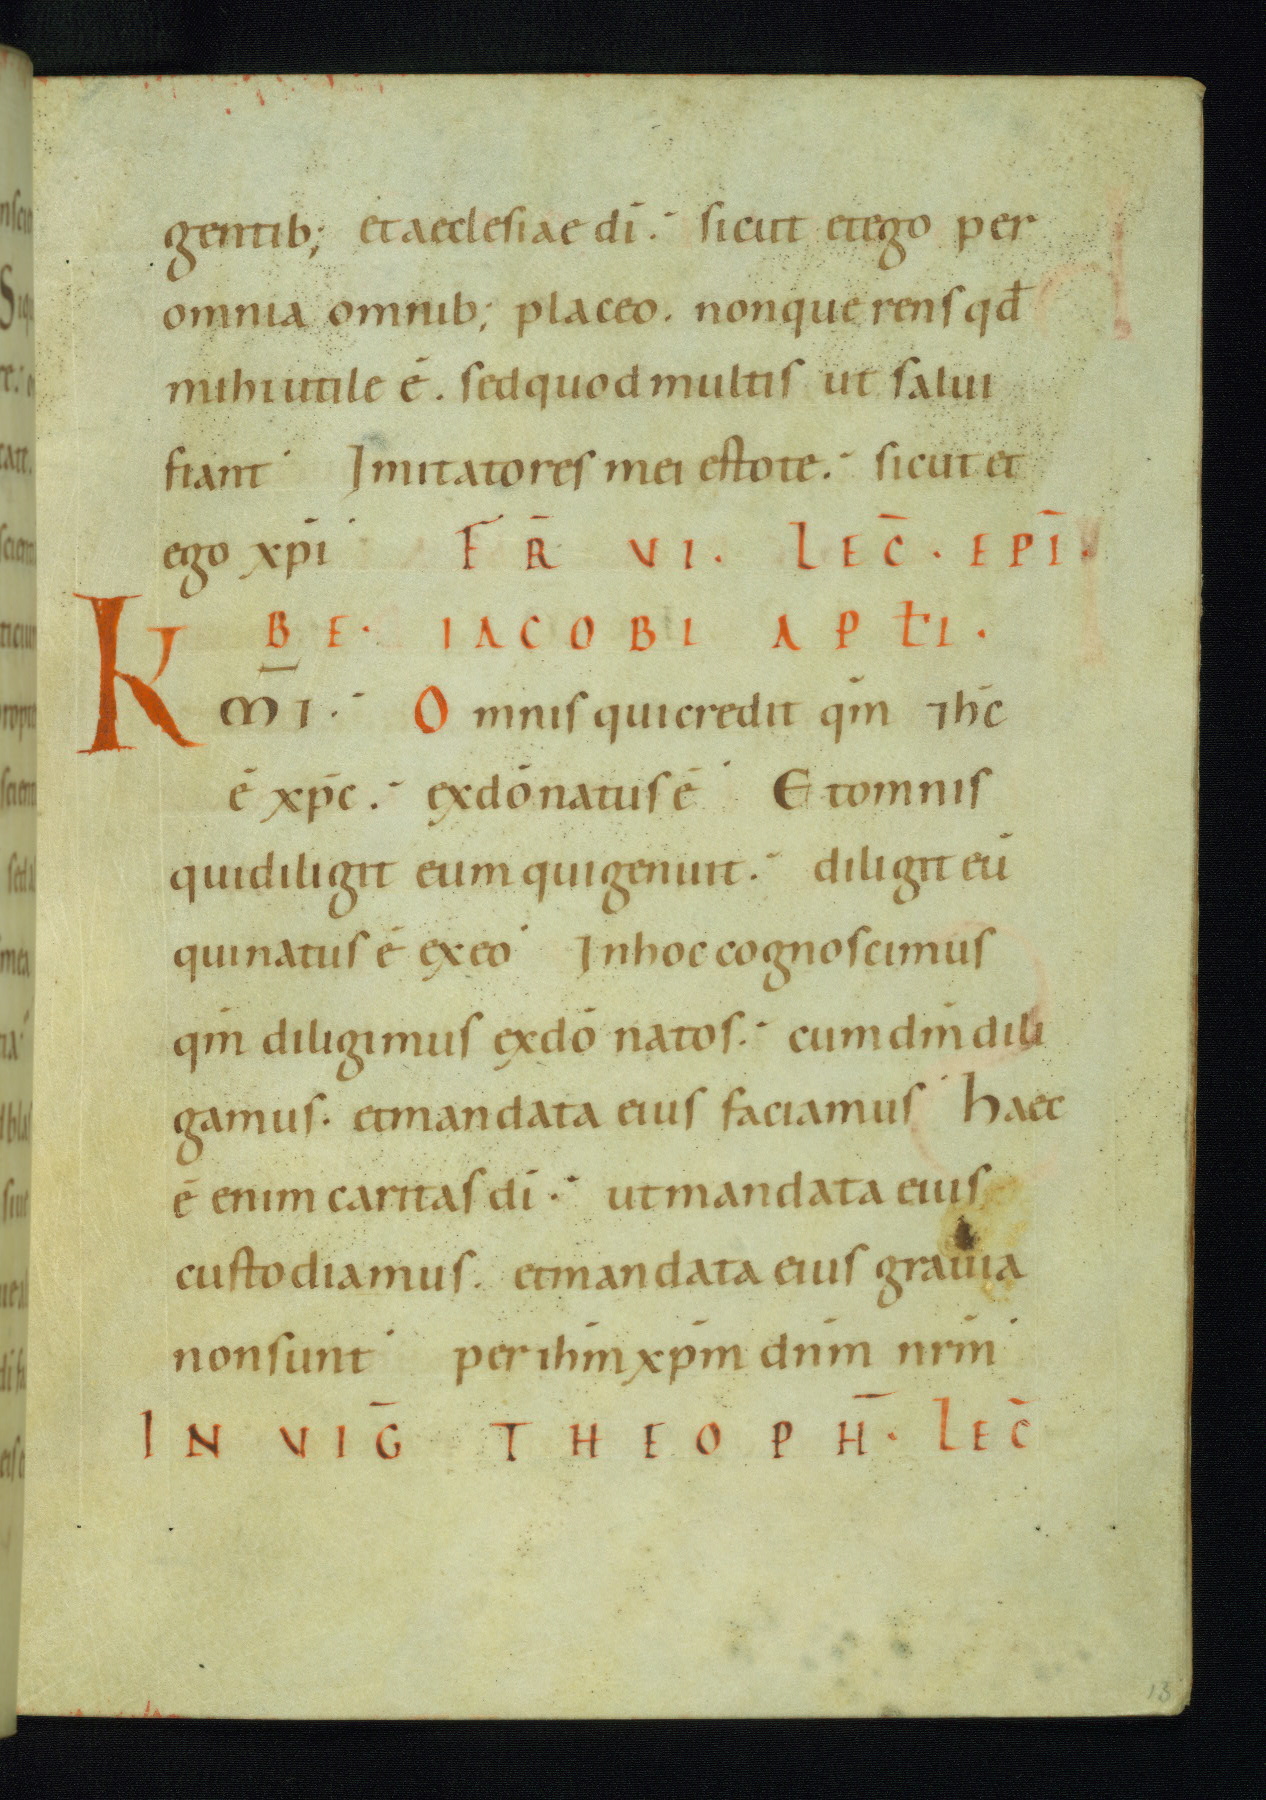 gentib; et aecclesiae dī. sicut et ego per
omnia omnib; placeo. non querens qđ
mihi utile ē. sed quod multis ut salui
fiant Imitatores mei estote. sicut et
ego xp̄i FR̄ VI. LEC̄. EPĪ.
BE. IACOBI APŁI.
KM̄I. Omnis qui credit qm̄ ihc̄
ē xp̄c. ex dō natus ē Et omnis
qui diligit eum qui genuit. diligit eū
qui natus ē ex eo In hoc cognoscimus
qm̄ diligimus ex dō natos. cum dm̄ dili
gamus. et mandata eius faciamus haec
ē enim caritas dī. ut mandata eius
custodiamus. et mandata eius grauia
non sunt per ihm̄ xp̄m dnm̄ nrm̄
IN VIḠ THEOPH̄. LEC̄
13